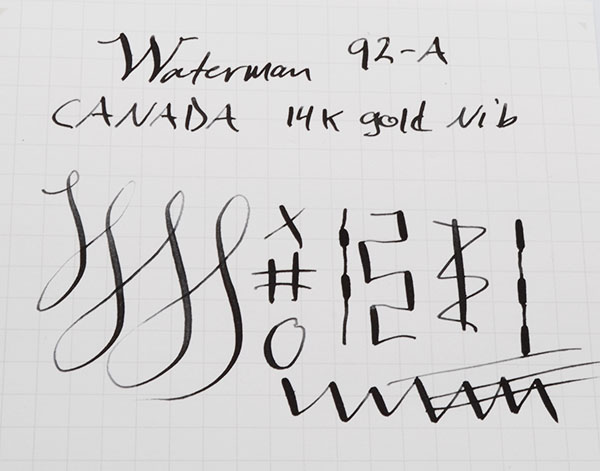 Waterman 92-A
CANADA 14K gold Nib